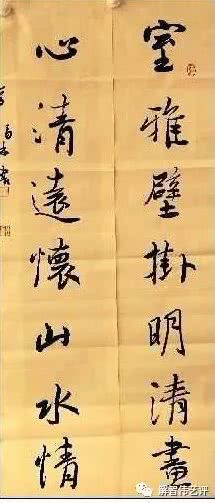 室雅壁掛明清畫
心清遠懷山水情
解智伟艺评